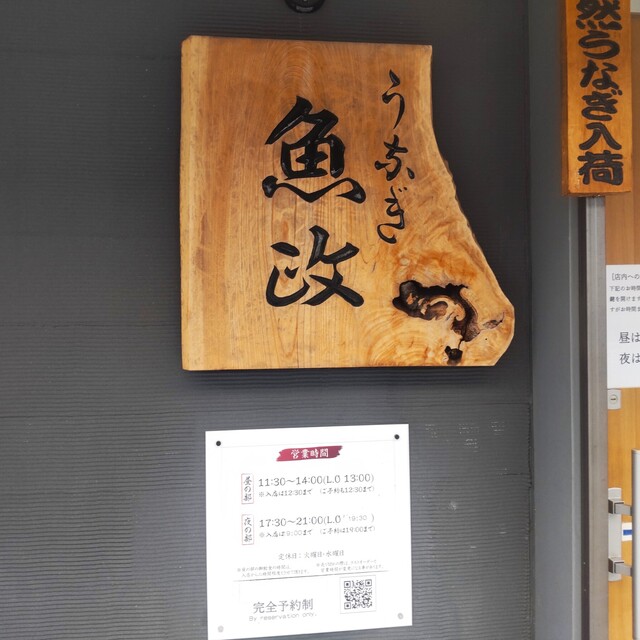 うなぎ
魚政
然うなぎ入荷
営業時間
昼の部
11:30〜14:00(L.O 13:00)
※入店は12:30まで (ご予約も12:30まで)
夜の部
17:30〜21:00(L.O 19:30 )
※入店は19:00まで (ご予約は19:00まで)
定休日：火曜日・水曜日
完全予約制
By reservation only.
[店内への
下記のお時間
鍵を開けます
すがお時間ま
昼は
夜は